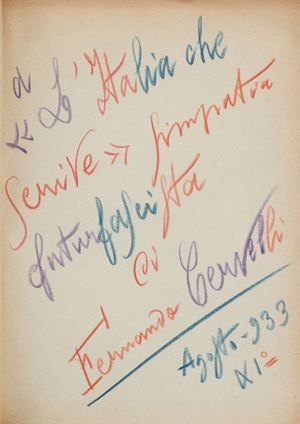 a
« L'Italia che
scrive » simpatia
futurfascista
di
Fernando Cervelli
Agosto - 933
XI°